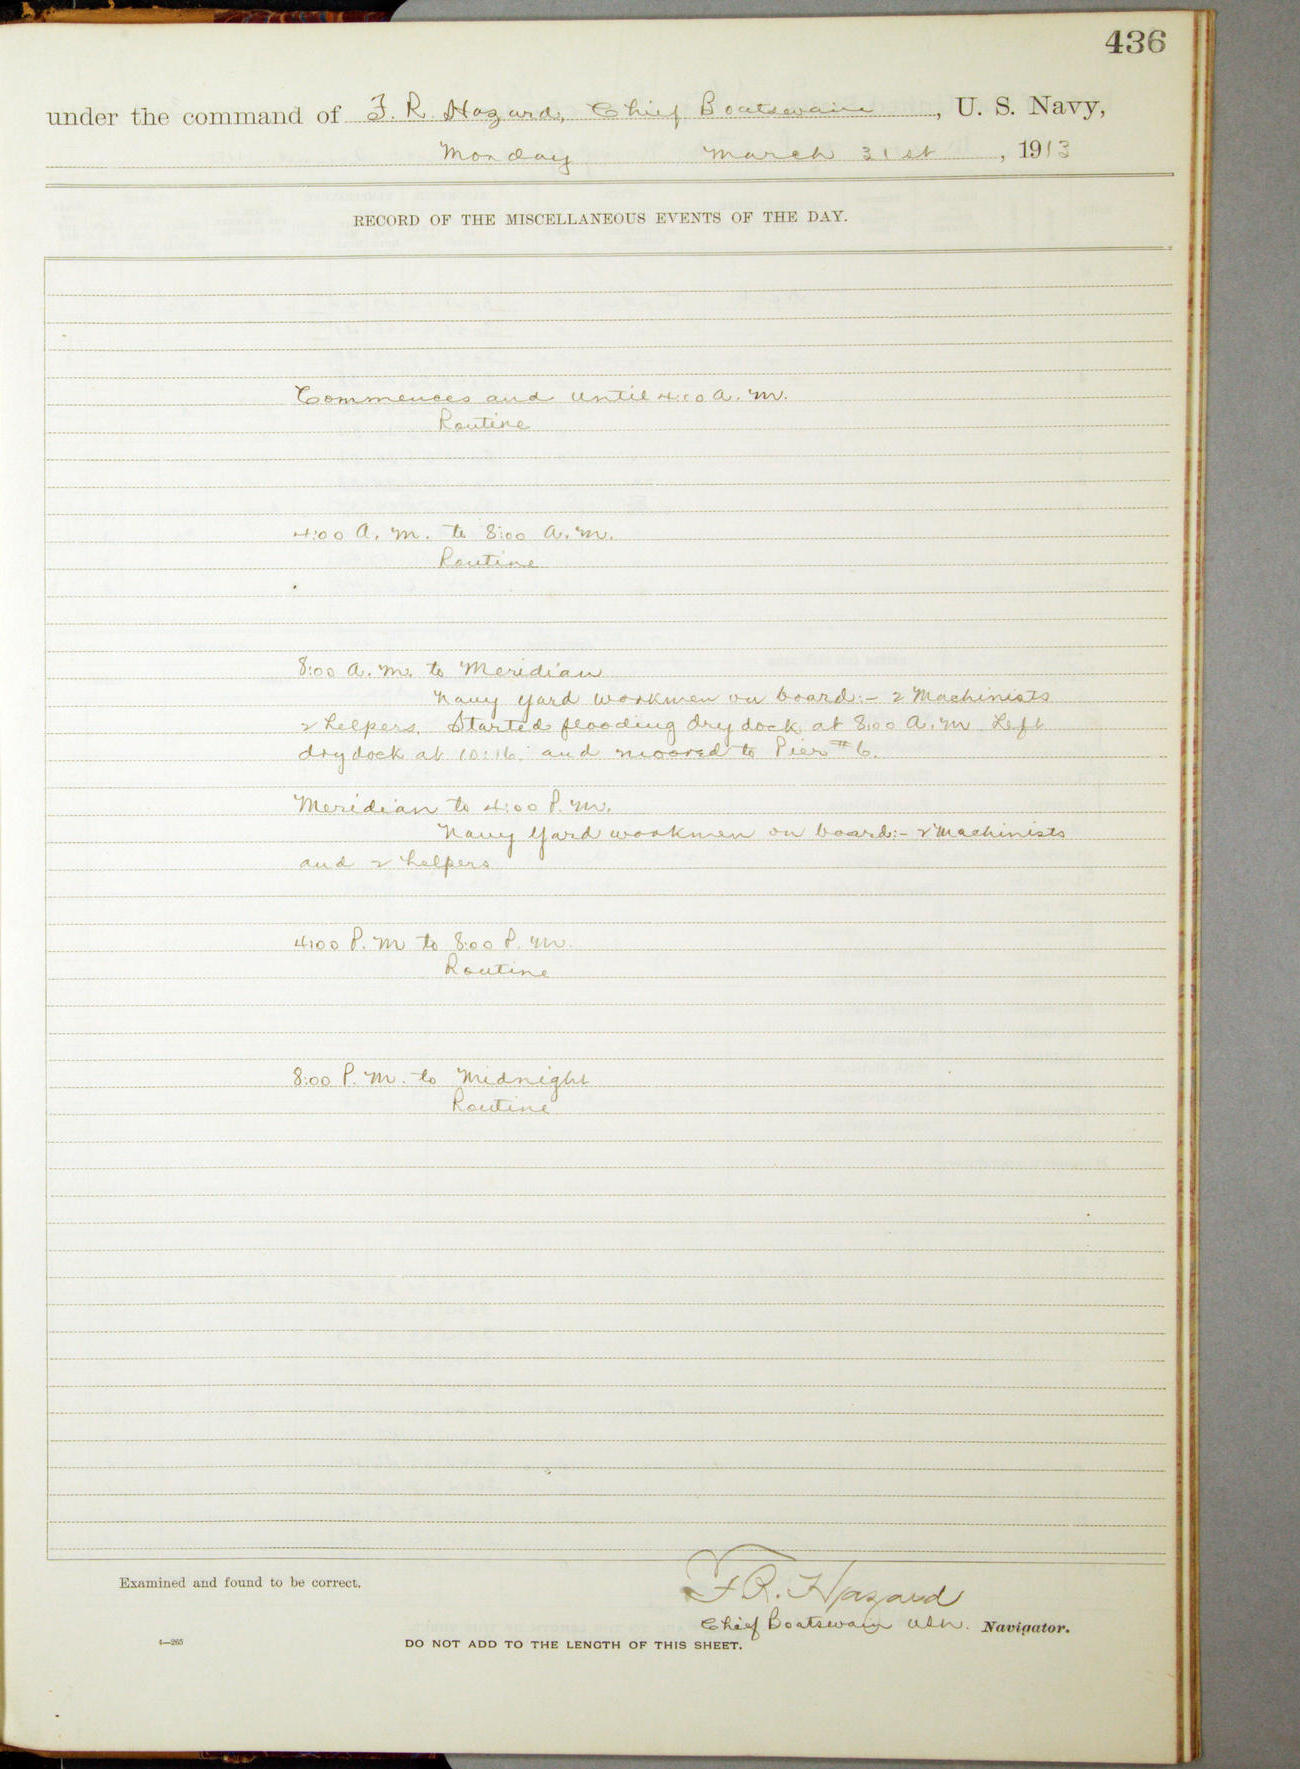 436
under the command of F. R. Hazard, Chief Boatswain, U. S. Navy,
Monday March 31st, 1913
RECORD OF THE MISCELLANEOUS EVENTS OF THE DAY.
Commences and until 4:00 A. M.
Routine
4:00 A. M. to 8:00 A. M.
Routine
8:00 A. M. to Meridian
Navy Yard workmen on board:- 2 Machinists
2 helpers. Started flooding dry dock at 8:00 A. M. Left
dry dock at 10:16. and moored to Pier #6.
Meridian to 4:00 P. M.
Navy Yard workmen on board:- 2 Machinists
and 2 helpers
4:00 P. M to 8:00 P. M.
Routine
8:00 P. M. to Midnight
Routine
Examined and found to be correct.
F. R. Hazard
Chief Boatswain USN. Navigator.
4—265
DO NOT ADD TO THE LENGTH OF THIS SHEET.